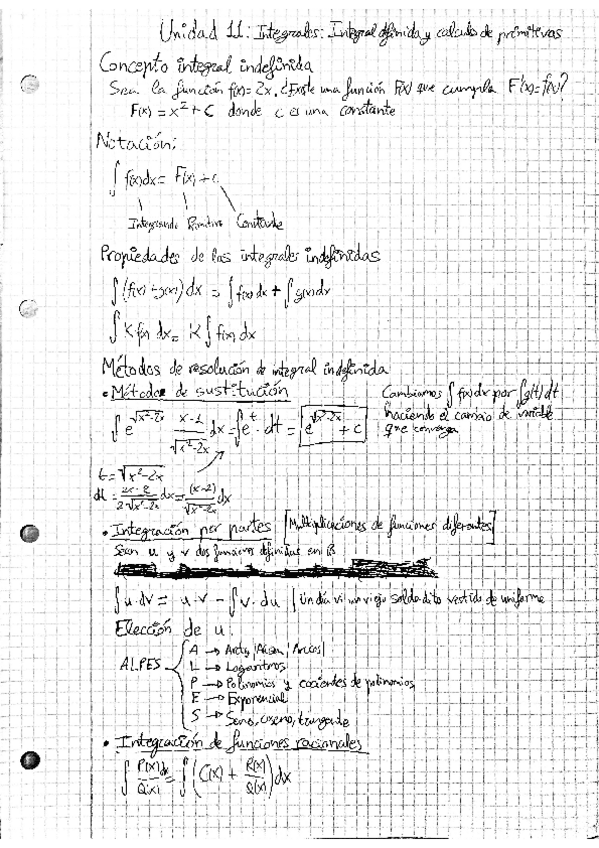 Unidad 11: Integrales: Integral definida y calculo de primitivas
Concepto integral indefinida
Sea la función f(x)=2x. ¿Existe una función F(x) que cumpla F'(x)=f(x)?
F(x) = x² + C donde c es una constante
Notación:
∫ f(x)dx = F(x) + c
Integrando Primitiva Constante
Propiedades de las integrales indefinidas
∫(f(x) + g(x))dx = ∫f(x)dx + ∫g(x)dx
∫K f(x) dx = K∫f(x)dx
Métodos de resolución de integral indefinida
• Método de sustitución
Cambiamos ∫f(x)dx por ∫g(t)dt
haciendo el cambio de variable
que convenga
∫e^√(x²-2x) · (x-1)/√(x²-2x) dx = ∫e^t · dt = e^√(x²-2x) + C
t = √(x²-2x)
dt = (2x-2)/(2√(x²-2x)) dx = (x-2)/√(x²-2x) dx
• Integración por partes [Multiplicaciones de funciones diferentes]
Sean u y v dos funciones definidas en
∫u·dv = u·v - ∫v·du | Un día vi un viejo soldadito vestido de uniforme
Elección de u:
ALPES
A → Arcos
L → Logaritmos
P → Polinomios y cocientes de polinomios
E → Exponencial
S → Seno, coseno, tangente
• Integración de funciones racionales
∫ P(x)/Q(x) dx = ∫(C(x) + R(x)/Q(x))dx